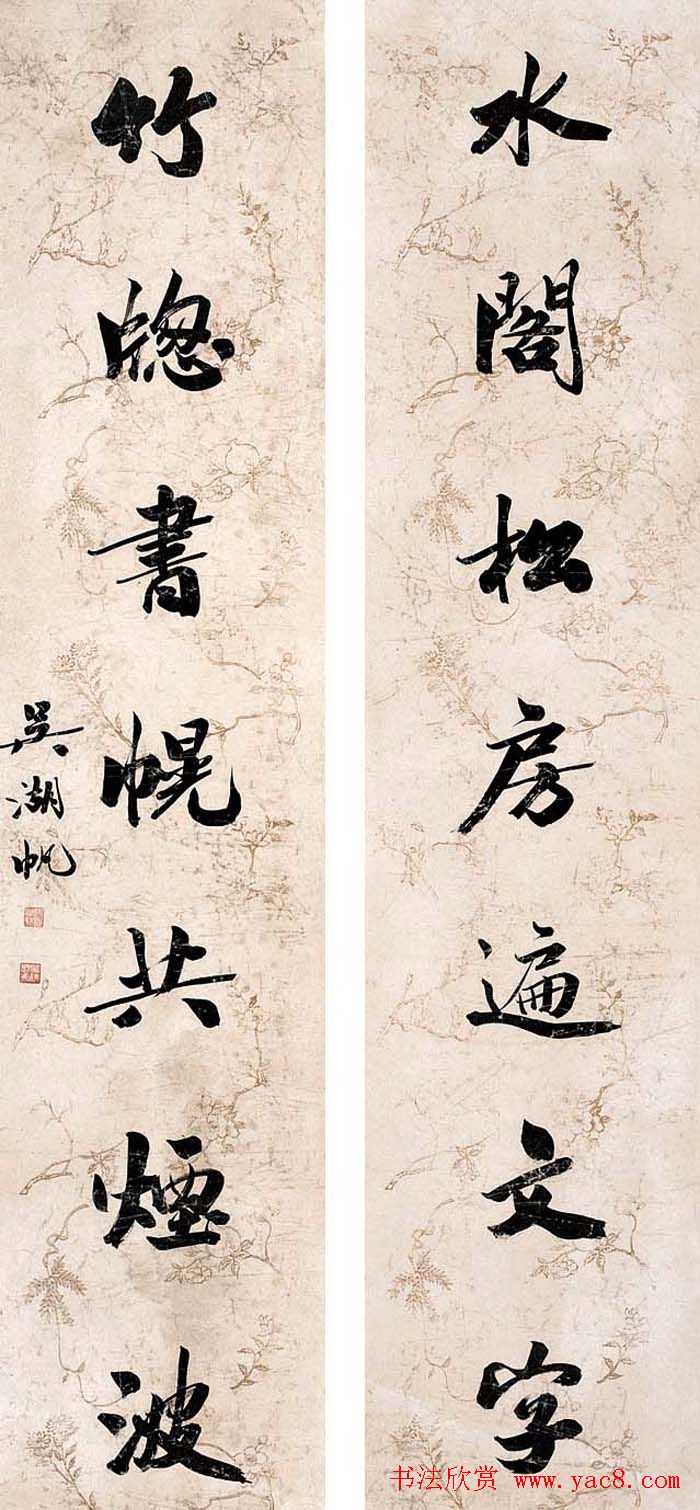 水閣松房遍文字
竹牕書幌共煙波
吴湖帆
书法欣赏 www.yac8.com